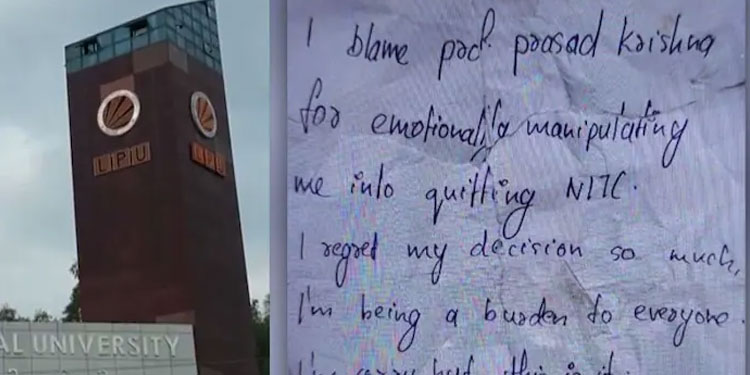 LPU
LPU
AL UNIVERSITY
I blame prof. prasad krishna
for emotionally manipulating
me into quitting NITC.
I regret my decision so much,
I'm being a burden to everyone.
this is it.